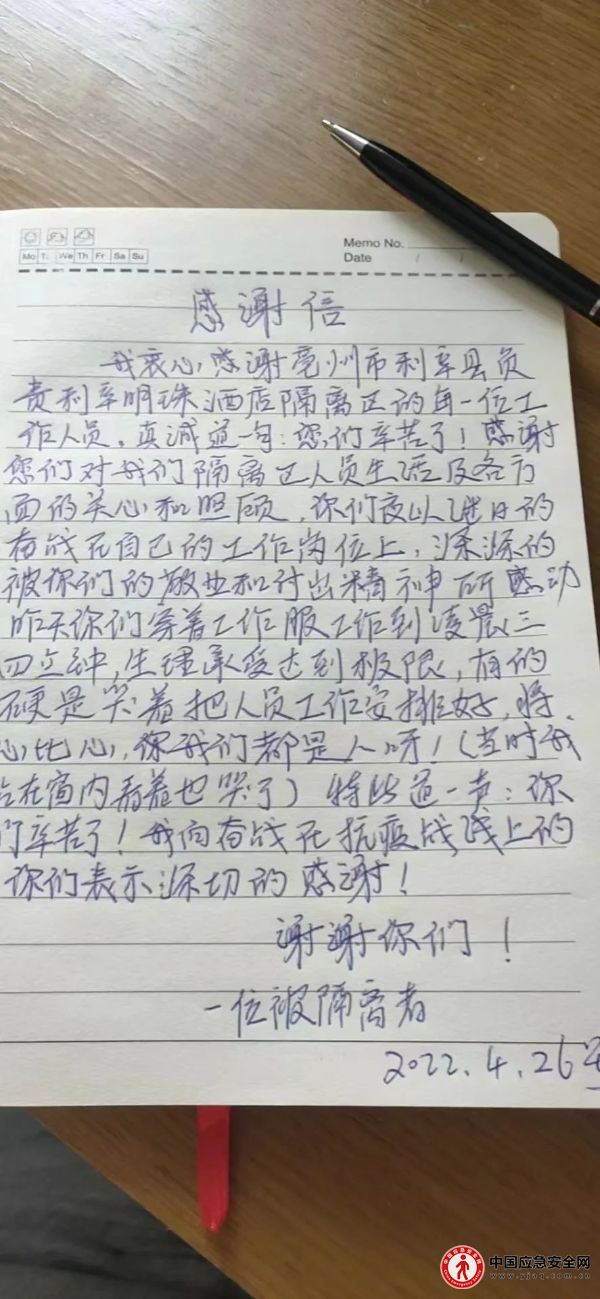 Memo No.
Mo Tu We Th Fr Sa Su
Date / /
感谢信
我衷心感谢亳州市利辛县负
责利辛明珠酒店隔离区的每一位工
作人员,真诚道一句:您们辛苦了!感谢
您们对我们隔离区人员生活及各方
面的关心和照顾,你们夜以继日的
奋战在自己的工作岗位上,深深的
被你们的敬业和付出精神所感动
昨天你们穿着工作服工作到凌晨三
四点钟,生理承受达到极限,有的
硬是哭着把人员工作安排好,将
心比心,你我们都是人呀!(当时我
站在窗内看着也哭了)特此道一声:你
们辛苦了!我向奋战在抗疫战线上的
你们表示深切的感谢!
谢谢你们!
一位被隔离者
2022.4.26
中国应急安全网
www.yjaq.com.cn